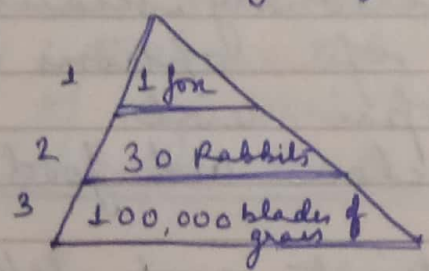 1 1 fox
2 30 Rabbits
3 100,000 blades of
grass